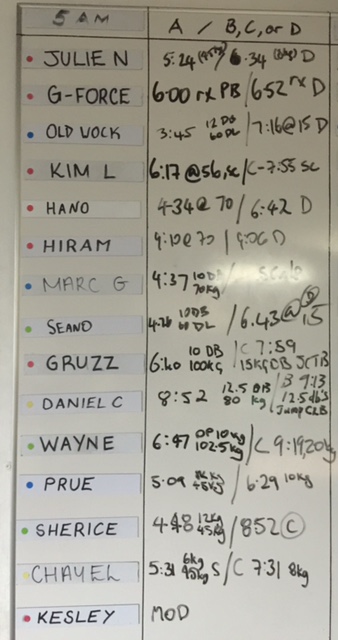 5 AM A / B, C, or D
JULIE N 5:24 / 6.34 D
G-FORCE 6:00 rx PB / 6:52 rx D
OLD UOCK 3:45 12 DB 60 DL / 7:16 @ 15 D
KIM L 6:17 @ 56, sc / C - 7:55 sc
HANO 4-34 @ 70 / 6:42 D
HIRAM 4:10 @ 70 / 9:06 D
MARC G 4:37 10 DB 70kg / scale
SEANO 10 DB 60 DL / 6.43 @ 15 D
GRUZZ 6:40 10 DB 100kg / C 7:59 15KG DB
DANIEL C 8:52 12.5 DB 80 kg / B 9:13 12.5 db's Jump
WAYNE 6:47 DP 10kg 102.5kg / C 9:19, 20kg
PRUE 5:09 45kg / 6:29 10kg
SHERICE 4:48 12kg 45kg / 852 C
CHAYEL 5:31 6kg 45kg S / C 7:31 8kg
KESLEY MOD